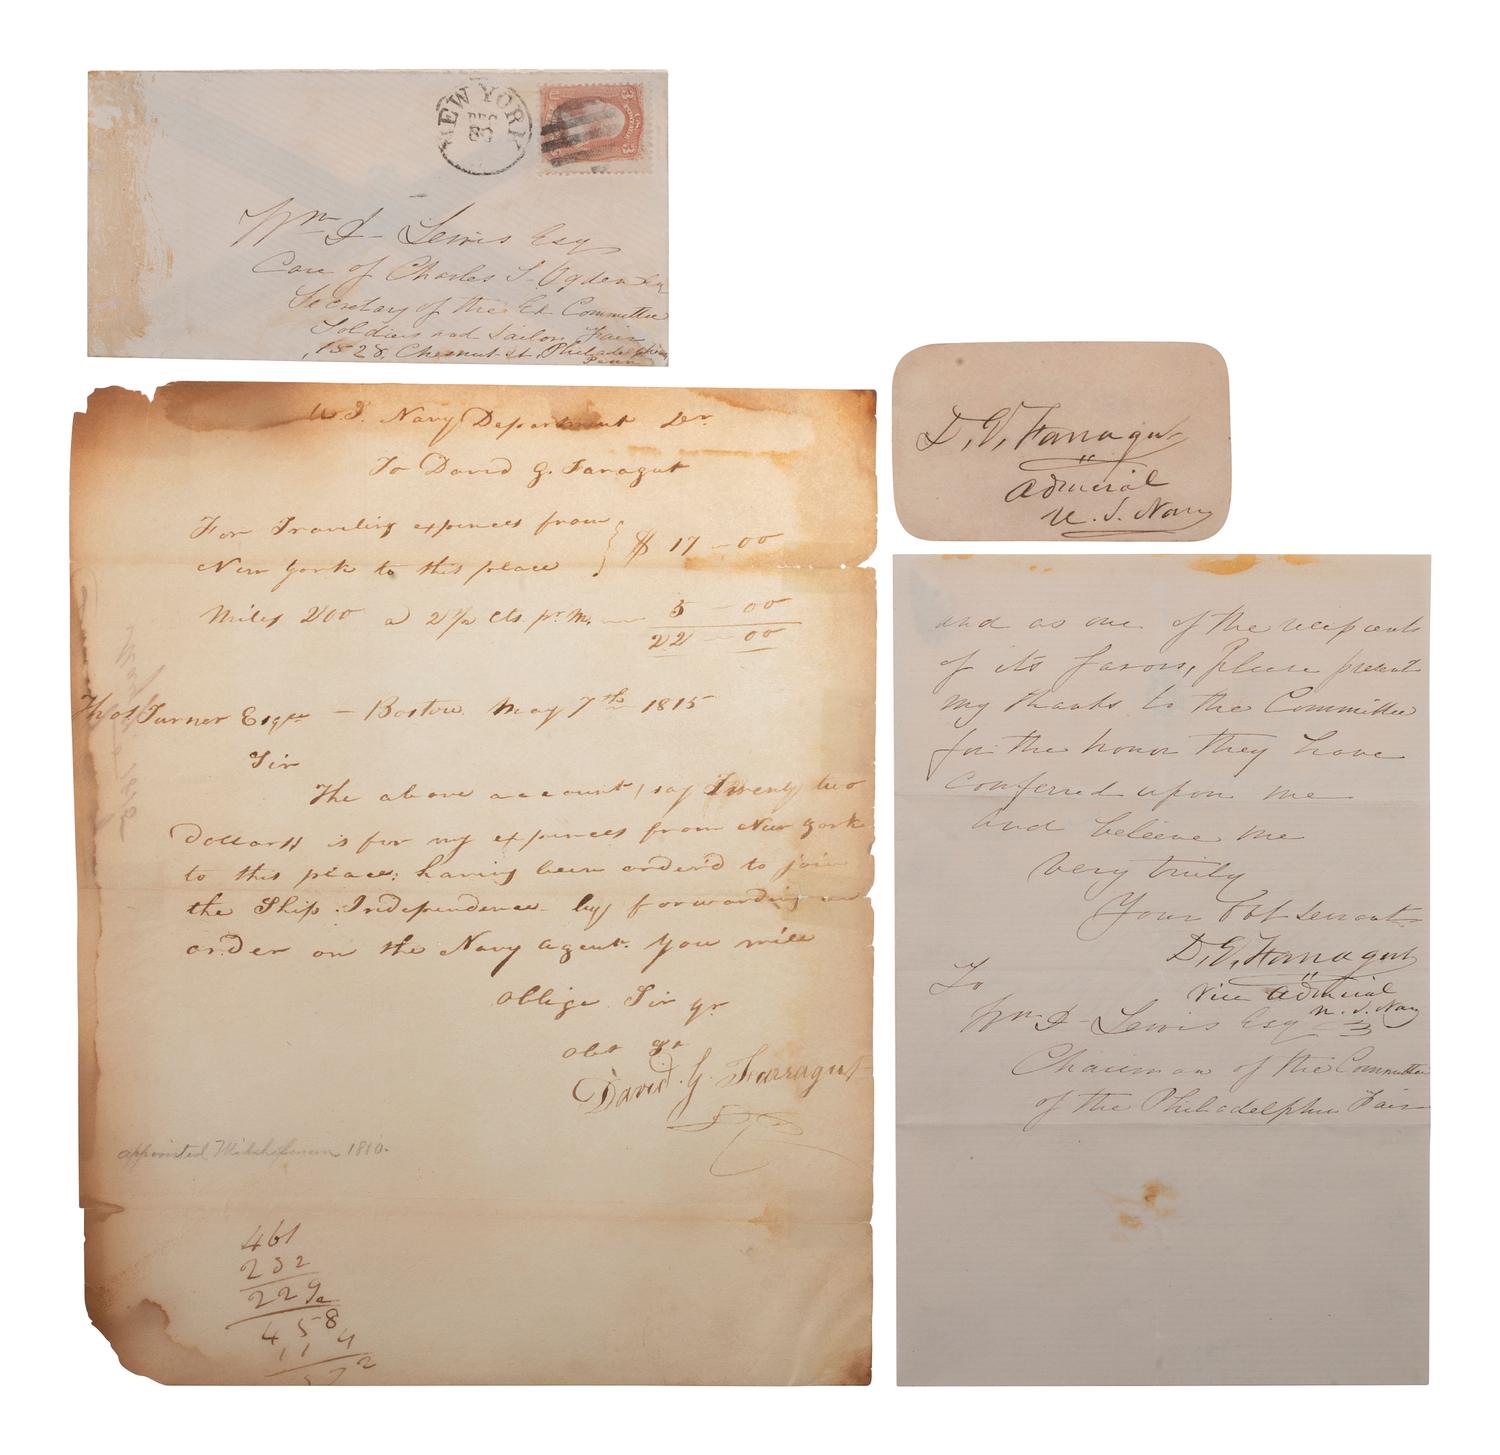 NEW YORK
DEC
30
3 3
U.S. POSTAGE
Wm D. Lewis Esq
Care of Charles S. Ogden Esq
Secretary of the Ex Committee
Soldiers and Sailors Fair
1528. Chesnut St. Philadelphia,
Penn
U.S. Navy Department Dr.
To David G. Faragut
For Traveling expences from
New York to this place } $ 17-00
Miles 200 a 2½ cts pr. M. — 5-00
22-00
Thos Turner Esqre — Boston May 7th 1815
Sir
The above account, say Twenty two
Dollars is for my expences from New York
to this place; having been order'd to join
the Ship Independence by forwarding an
order on the Navy Agent. You will
Oblige Sir yr
Obt St
David G Farragut
appointed Midshipman 1810.
461
232
229
458
114
D, G, Farragut
Admiral
U. S. Navy
and as one of the recipients
of its favors, please present
my thanks to the Committee
for the honor they have
conferred upon me
and believe me
very truly
Your Obt servant
D, G, Farragut
Vice Admiral
U. S. Navy
To
Wm D. Lewis Esq
Chairman of the Committee
of the Philadelphia Fair